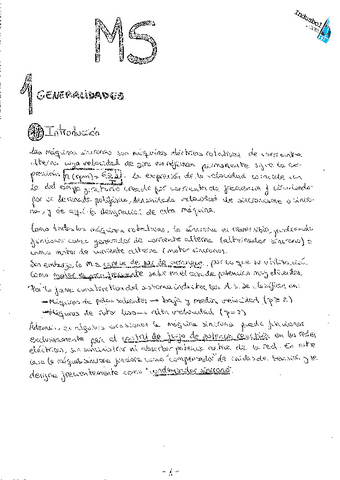 MS
1 GENERALIDADES
Introducción
Las máquinas síncronas son máquinas eléctricas rotativas de corriente
alterna cuya velocidad de giro en régimen permanente sigue la ex-
presión n (rpm) = . La expresión de la velocidad coincide con
la del campo giratorio creado por corriente de frecuencia y circulando
por el devanado polifásico, denominada velocidad de sincronismo o síncro-
na, y de aquí la designación de esta máquina.
Como todas las máquinas rotativas, la síncrona es reversible, pudiendo
funcionar como generador de corriente alterna (alternador síncrono) o
como motor de corriente alterna (motor síncrono).
Sin embargo, la MS carece de par de arranque, por lo que su utilización
como motor es poco frecuente salvo en el caso de potencias muy elevadas.
Por la forma constructiva del sistema inductor, las M.S. se clasifican en:
Máquinas de polos salientes → baja y media velocidad (p ≥ 2)
Máquinas de rotor liso → alta velocidad
Además, en algunas ocasiones la máquina síncrona puede funcionar
exclusivamente para el control de flujo de potencia reactiva en las redes
eléctricas, sin suministrar ni absorber potencia activa de la red. En este
caso la máquina síncrona funciona como "compensador" de caídas de tensión, y se
designa frecuentemente como "condensador síncrono".
- 1 -